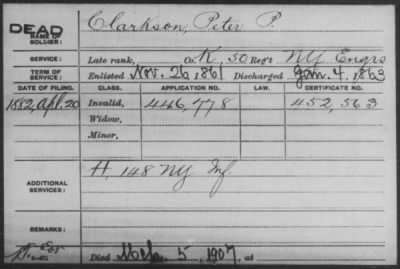 DEAD
NAME OF SOLDIER: Clarkson, Peter P.
SERVICE: Late rank, Co. K, 50 Reg't NY Engrs
TERM OF SERVICE: Enlisted Nov. 26 1861 Discharged Jan. 4, 1863
DATE OF FILING. CLASS. APPLICATION NO. LAW. CERTIFICATE NO.
1882, Apl. 20 Invalid, 446,778 452,563
Widow,
Minor,
ADDITIONAL SERVICES: H. 148 NY Inf.
REMARKS:
Died Mch 5, 1907, at